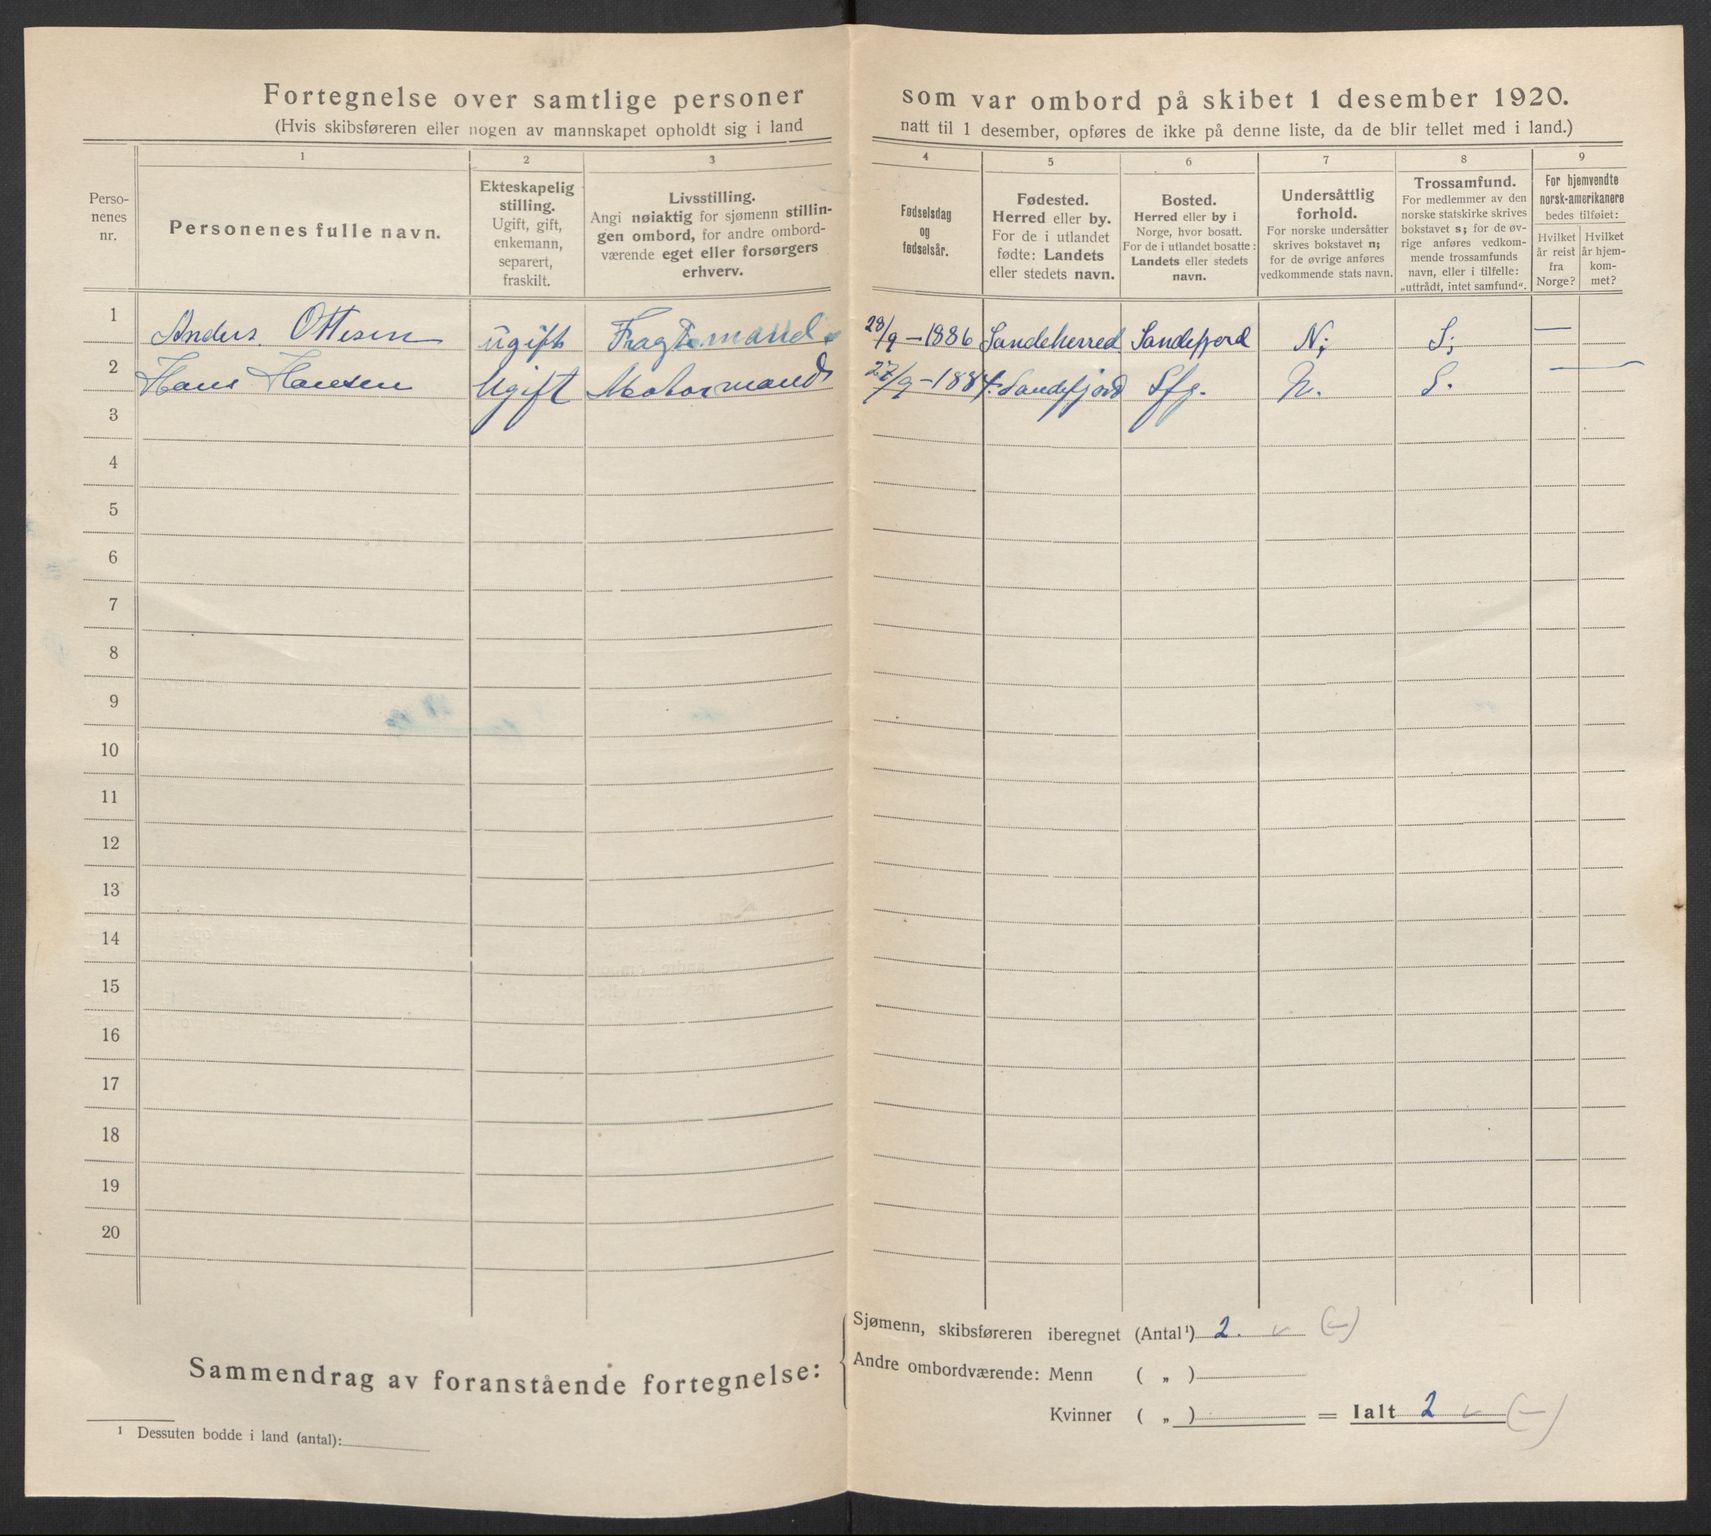 Fortegnelse over samtlige personer som var ombord på skibet 1 desember 1920.
(Hvis skibsføreren eller nogen av mannskapet opholdt sig i land natt til 1 desember, opføres de ikke på denne liste, da de blir tellet med i land.)
1 2 3 4 5 6 7 8 9
Perso-
nenes
nr.
Personenes fulle navn.
Ekteskapelig
stilling.
Ugift, gift,
enkemann,
separert,
fraskilt.
Livsstilling.
Angi nøiaktig for sjømenn stillin-
gen ombord, for andre ombord-
værende eget eller forsørgers
erhverv.
Fødselsdag
og
fødselsår.
Fødested.
Herred eller by.
For de i utlandet
fødte: Landets
eller stedets navn.
Bosted.
Herred eller by i
Norge, hvor bosatt.
For de i utlandet bosatte:
Landets eller stedets
navn.
Undersåttlig
forhold.
For norske undersåtter
skrives bokstavet n;
for de øvrige anføres
vedkommende stats navn.
Trossamfund.
For medlemmer av den
norske statskirke skrives
bokstavet s; for de øv-
rige anføres vedkom-
mende trossamfunds
navn, eller i tilfelle:
„uttrådt, intet samfund“.
For hjemvendte
norsk-amerikanere
bedes tilføiet:
Hvilket
år reist
fra
Norge?
Hvilket
år hjem-
kom-
met?
1 Anders Ottesen ugift Fragtemand 28/9 - 1886 Sandeherred Sandefjord N; S; —
2 Hans Hansen Ugift Motormand 27/9 - 1884 Sandefjord Sfj. N. S. —
3
4
5
6
7
8
9
10
11
12
13
14
15
16
17
18
19
20
Sammendrag av foranstående fortegnelse:
Sjømenn, skibsføreren iberegnet (Antal¹) 2. v (—)
Andre ombordværende: Menn ( „ )
Kvinner ( „ ) = Ialt 2 v (—)
¹ Dessuten bodde i land (antal):